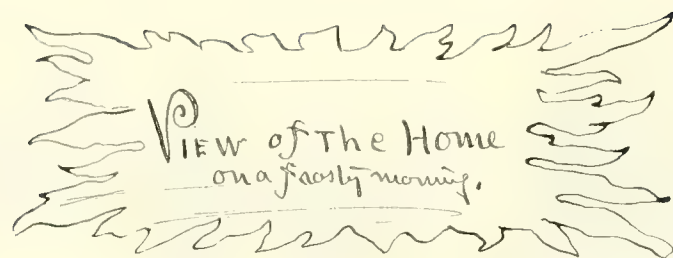 VIEW of The Home
on a frosty morning.